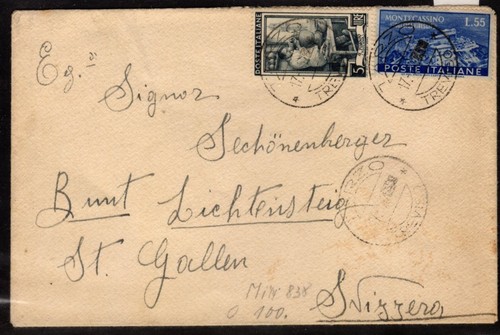 POSTE ITALIANE 5
MONTECASSINO L.55
POSTE ITALIANE
Eg. º
Signor
Sechönenberger
Bunt Lichtensteig
St. Gallen
Mi Nr 838
0 100.
Svizzera